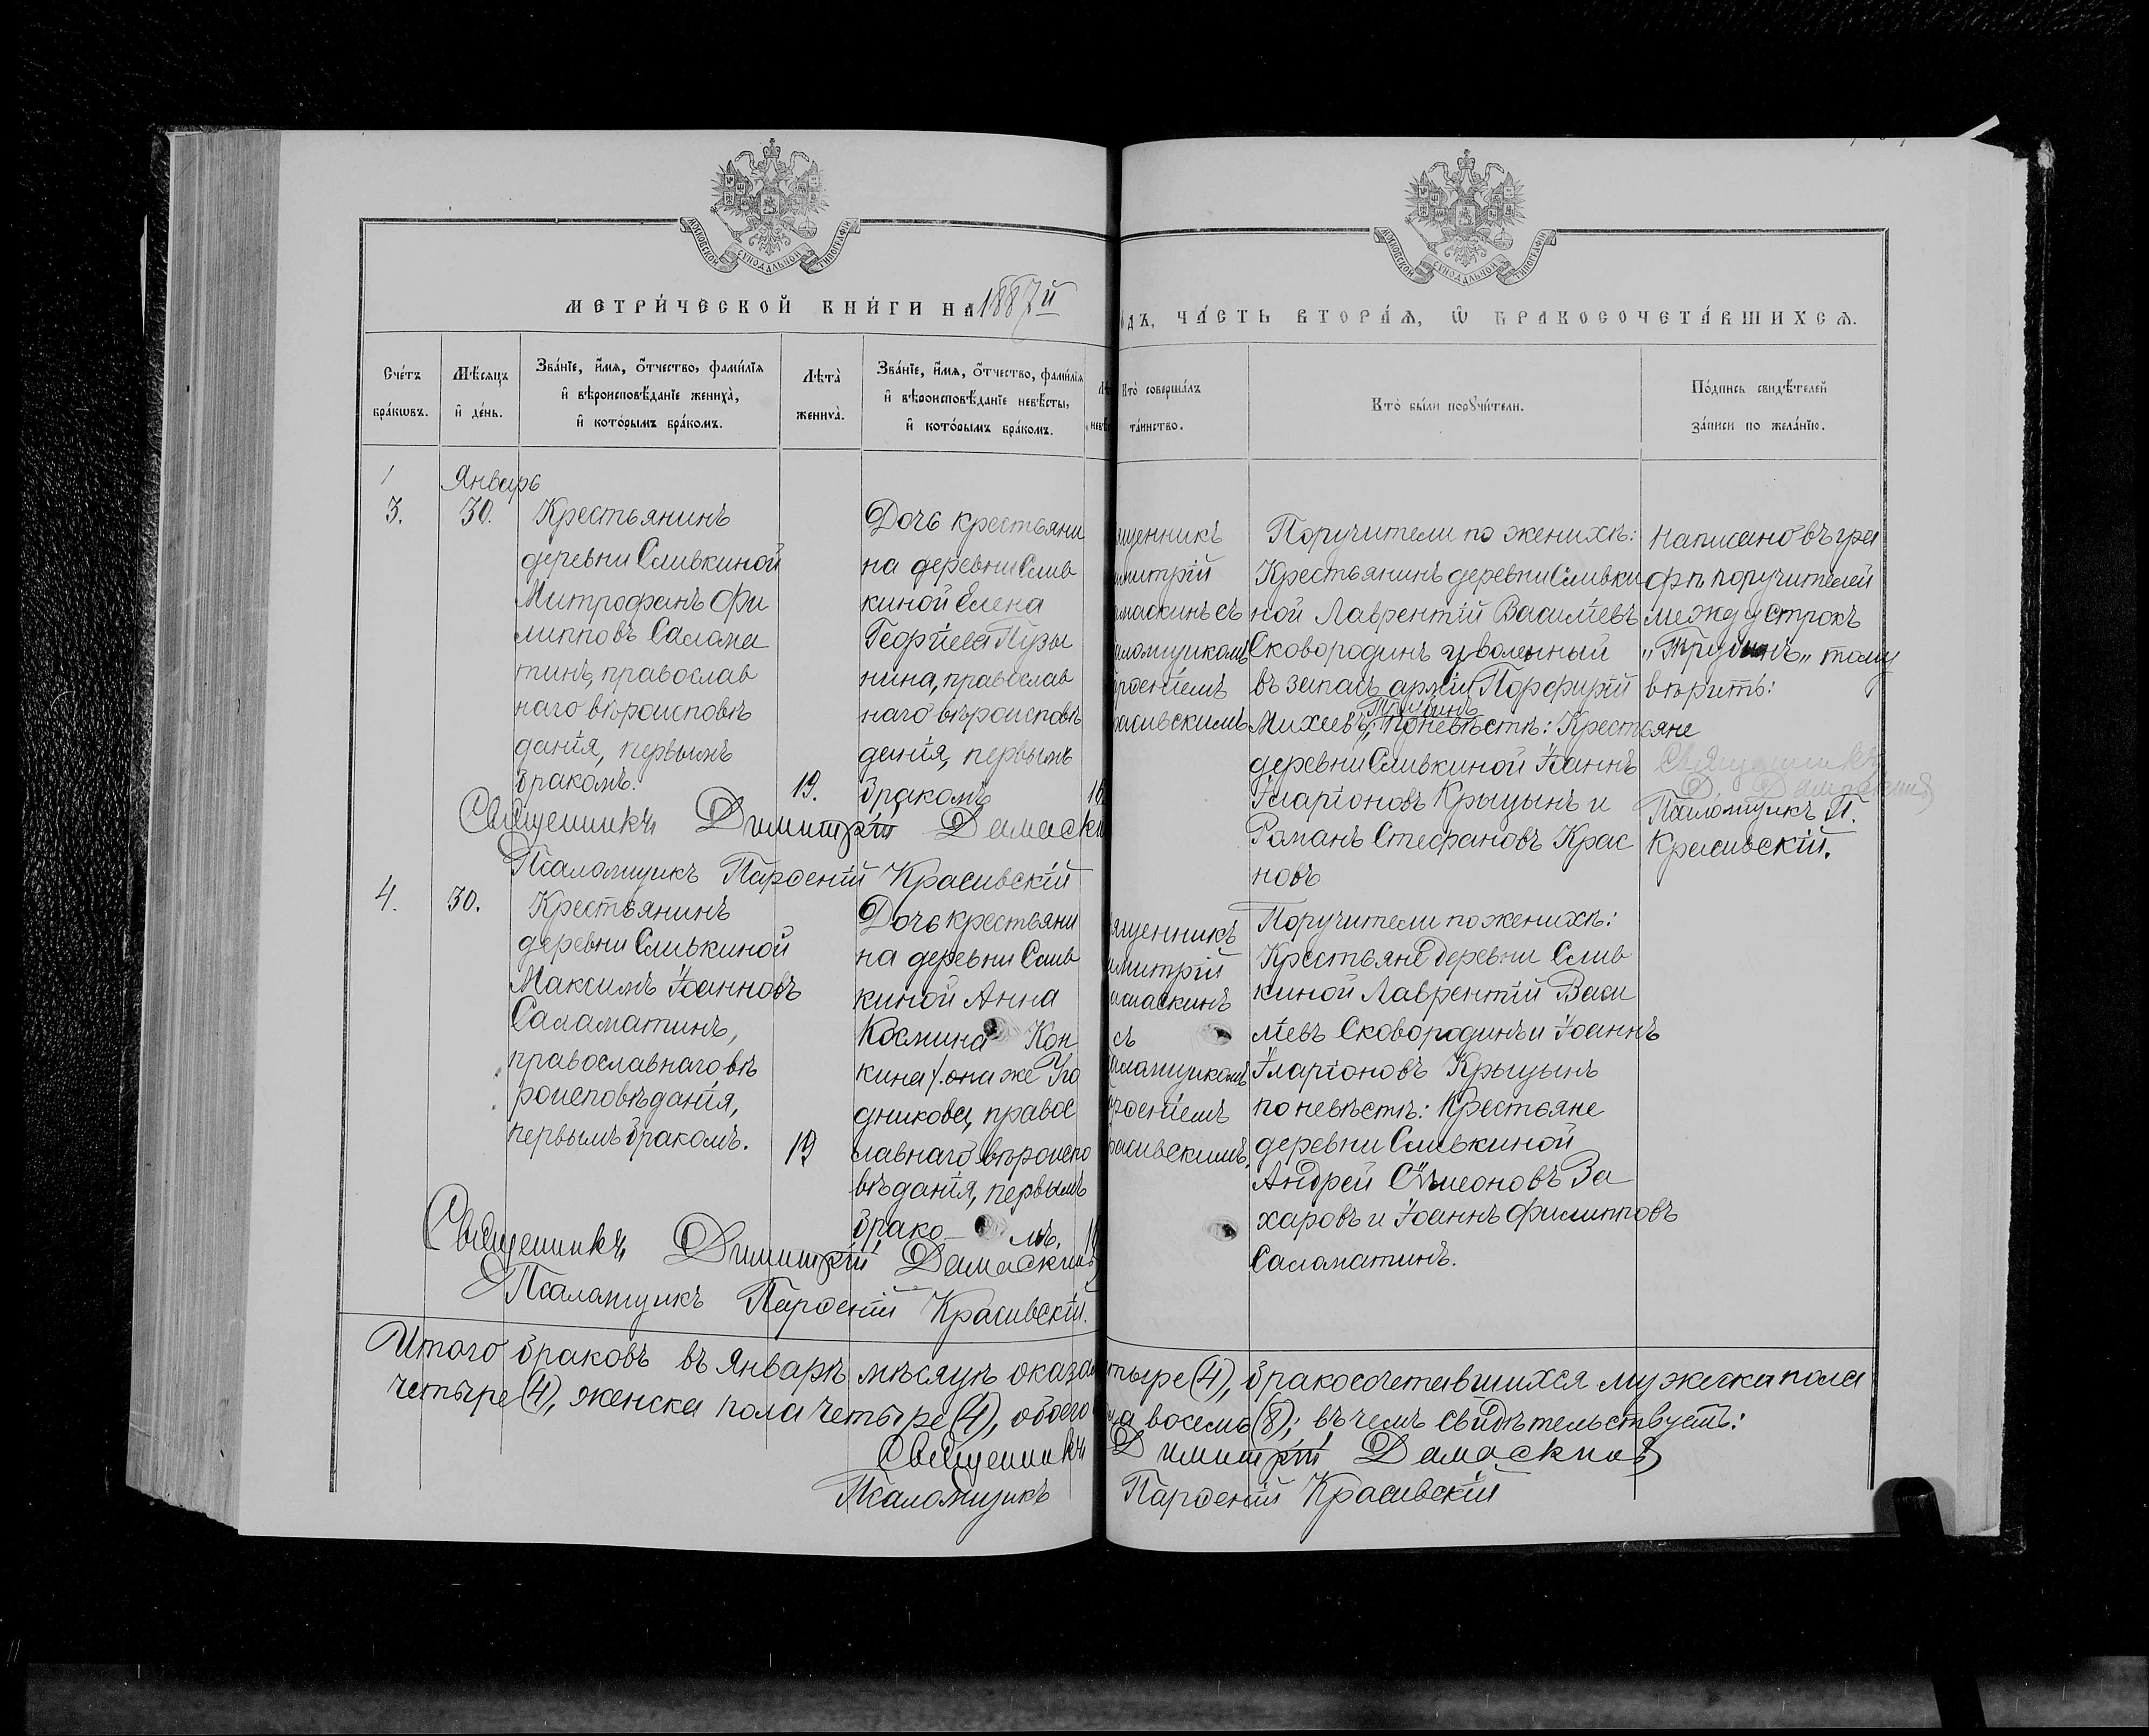 МОСКОВСКОЙ СУНОДАЛЬНОЙ ТИПОГРАФІИ
МОСКОВСКОЙ СУНОДАЛЬНОЙ ТИПОГРАФІИ
МЕТРИ́ЧЕСКОЙ КНИ́ГИ НА 1887й
ОДЪ, ЧА́СТЬ ВТОРА́Ѧ, Ѡ҆ БРАКОСОЧЕТА́ВШИХСѦ.
Сче́тъ
бра́кѡвъ.
Мѣ́сѧцъ
и҆ де́нь.
Зва́нїе, и҆́мѧ, ѻ҆́тчество, фами́лїѧ
и҆ вѣроисповѣ́данїе жениха̀,
и҆ кото́рымъ бра́комъ.
Лѣта̀
жениха̀.
Зва́нїе, и҆́мѧ, ѻ҆́тчество, фами́лїѧ
и҆ вѣроисповѣ́данїе невѣ́сты,
и҆ кото́рымъ бра́комъ.
Кто̀ соверша́лъ
та́инство.
Кто̀ бы́ли порꙋчи́тели.
По́дпись свидѣ́телей
за́писи по жела́нїю.
Январь
3.
30.
Крестьянинъ
деревни Сливкиной
Митрофанъ Фи
липповъ Салама
тинъ, православ
наго вѣроисповѣ
данія, первымъ
бракомъ.
19.
Дочь крестьяни
на деревни Слив
киной Елена
Георгіева Пузы
нина, православ
наго вѣроисповѣ
данія, первымъ
бракомъ
16
ященникъ
имитрій
амаскинъ съ
аломщикомъ
рѳеніемъ
расивскимъ
Поручители по женихѣ:
Крестьянинъ деревни Сливки
ной Лаврентій Василіевъ
Сковородинъ уволенный
въ запасъ арміи Порфирій
Трубинъ
Михеевъ; по невѣстѣ: Крестьяне
деревни Сливкиной Іоаннъ
Иларіоновъ Крыцынъ и
Романъ Стефановъ Крас
новъ
Написано въ гра
фѣ поручителей
между строкъ
„Трубинъ„ тому
вѣрить:
Священникъ
Д. Дамаскинъ
Псаломщикъ П.
Красивскій.
Священникъ Димитрій Дамаски
Псаломщикъ Парѳеній Красивскій
4.
30.
Крестьянинъ
деревни Сливкиной
Максимъ Іоанновъ
Саламатинъ,
православнаго вѣ
роисповѣданія,
первымъ бракомъ.
19
Дочь крестьяни
на деревни Слив
киной Анна
Космина Кон
кина /. она же Уго
дникова, правос
лавнаго вѣроиспо
вѣданія, первымъ
брако мъ.
ященникъ
имитрій
амаскинъ
съ
аломщикомъ
рѳеніемъ
расивскимъ.
Поручители по женихѣ:
Крестьяне деревни Слив
киной Лаврентій Васи
ліевъ Сковородинъ и Іоаннъ
Иларіоновъ Крыцынъ
по невѣстѣ: Крестьяне
деревни Сливкиной
Андрей Сѵмеоновъ За
харовъ и Іоаннъ Филипповъ
Саламатинъ.
Священникъ Димитрій Дамаскинъ
Псаломщикъ Парѳеній Красивскій.
Итого браковъ въ Январѣ мѣсяцѣ оказал тыре (4), бракосочетавшихся мужеска пола
четыре (4), женска пола четыре (4), обоего ла восемь (8); въ чемъ свидѣтельствуетъ:
Священникъ Димитрій Дамаскинъ
Псаломщикъ Парѳеній Красивскій